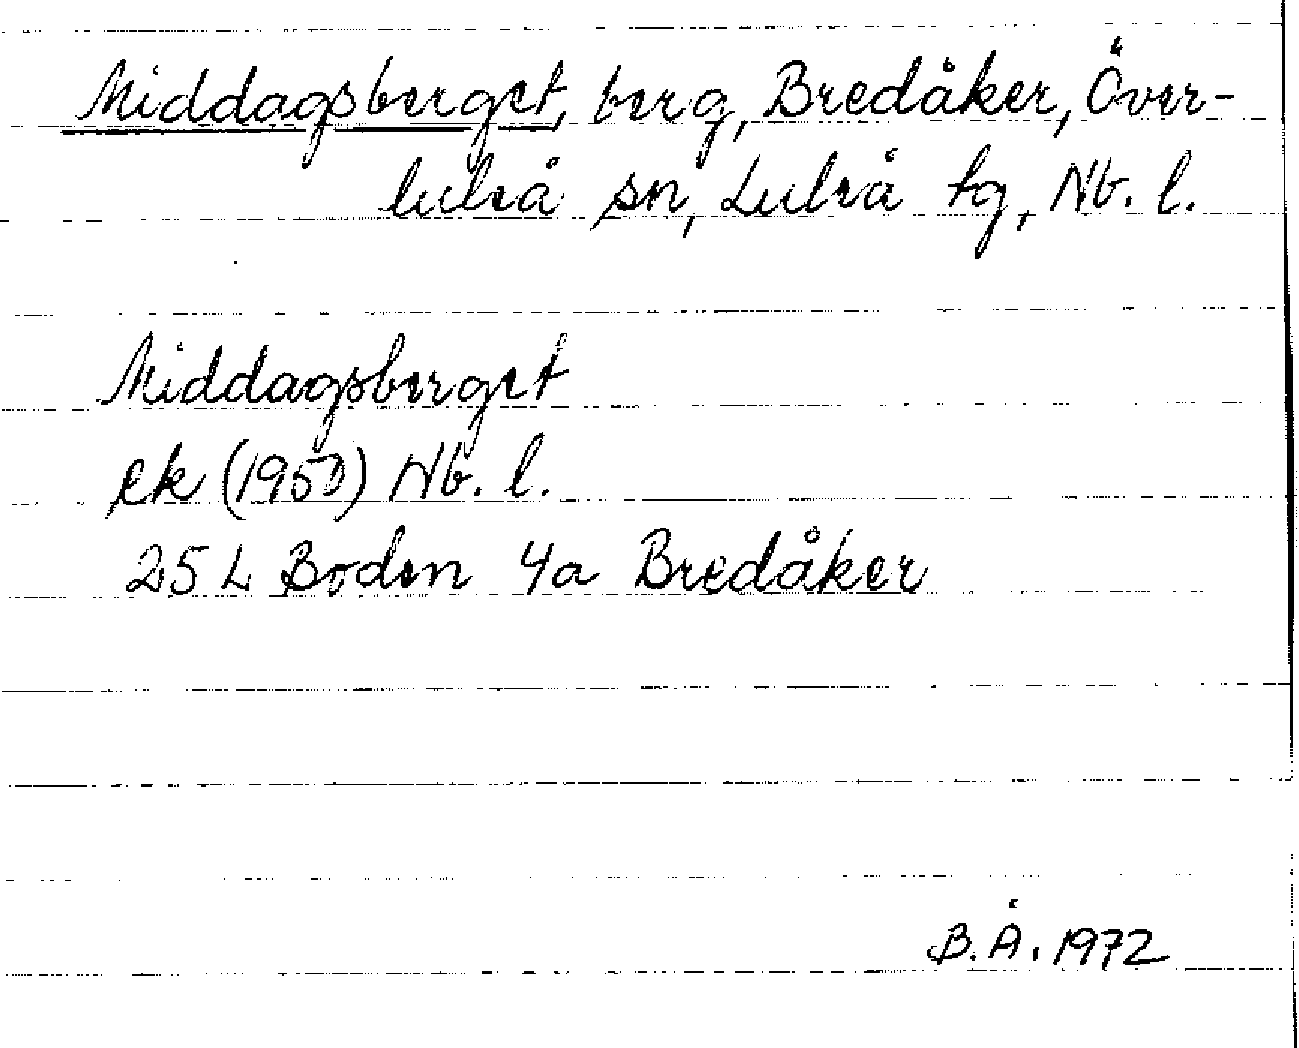 Middagsberget, berg, Bredåker, Över-
luleå sn, Luleå tg, Nb. l.
Middagsberget
ek (1950) Nb. l.
25 L Boden 4a Bredåker
B.Å. 1972